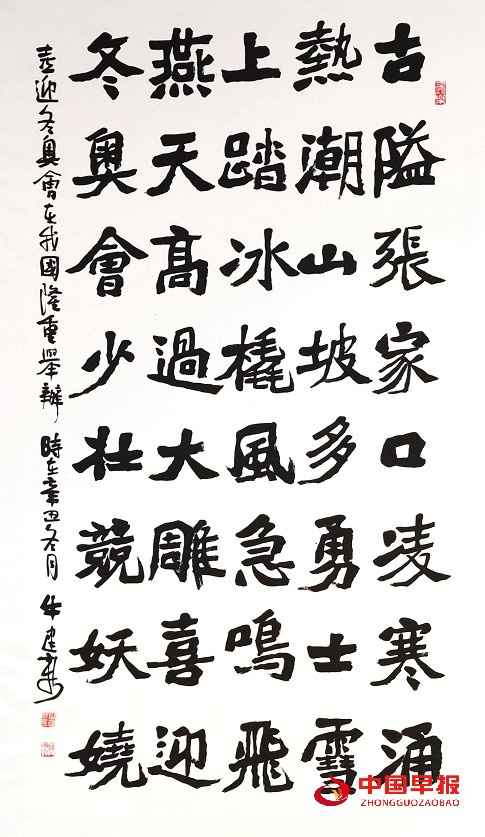 古隘張家口凌寒涌
熱潮山坡多勇士雪
上踏冰橇風急鳴飛
燕天高過大雕喜迎
冬奧會少壯競妖嬈
喜迎冬奧會在我國隆重舉辦 時在辛丑冬月
中国早报
ZHONGGUOZAOBAO